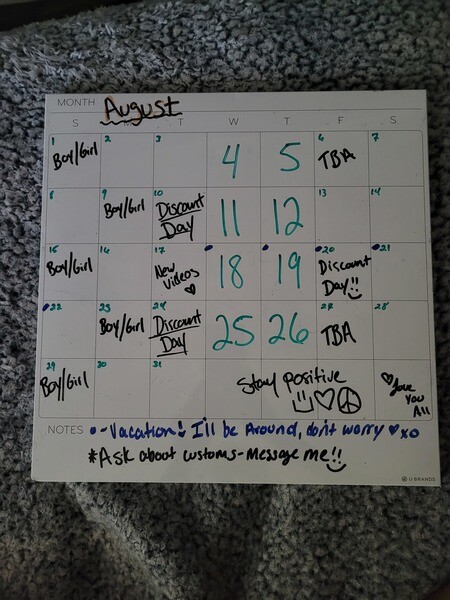 MONTH August
S M T W T F S
1 2 3 4 5 6 7
Boy/Girl TBA
8 9 10 11 12 13 14
Boy/Girl Discount Day
15 16 17 18 19 20 21
Boy/Girl New Videos Discount Day!!
22 23 24 25 26 27 28
Boy/Girl Discount Day TBA
29 30 31
Boy/Girl Stay positive Love You All
NOTES •-Vacation! I'll be Around, don't worry xo
*Ask about customs-Message me!!
U BRANDS